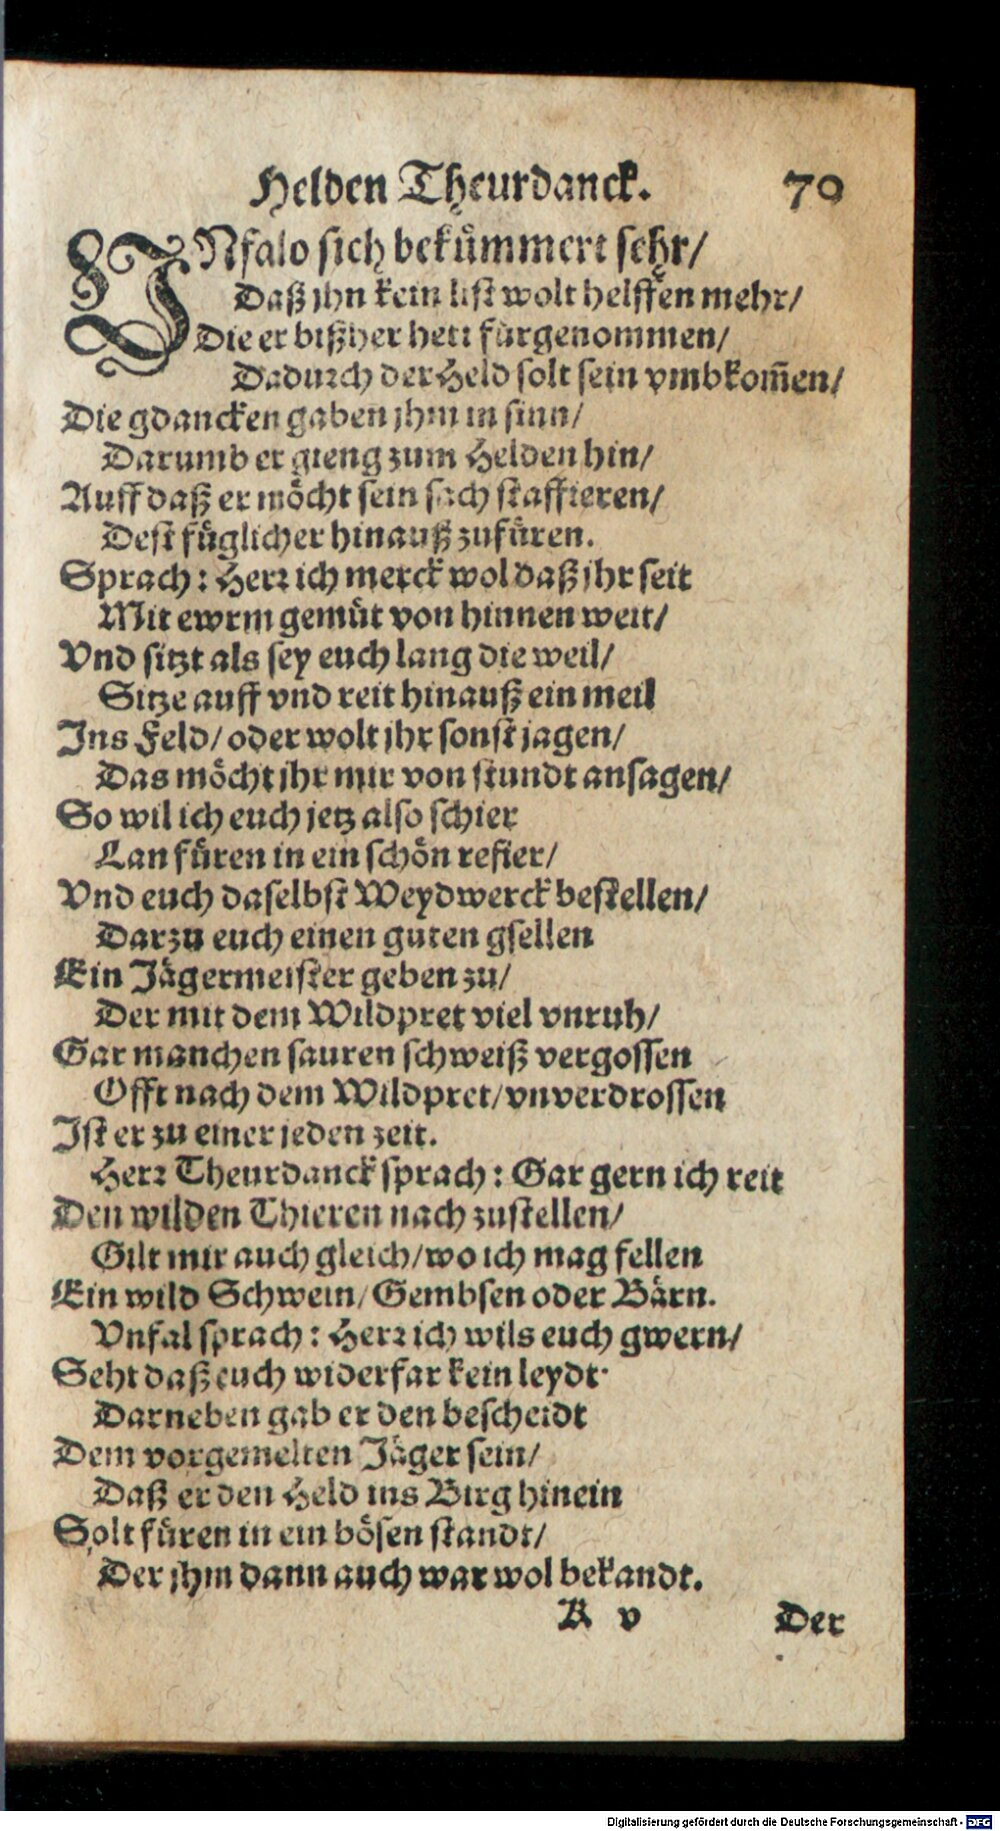 Helden Theurdanck. 70
VNfalo sich bekümmert sehr/
Daß jhn kein list wolt helffen mehr/
Die er bißher hett fürgenommen/
Dadurch der Held solt sein vmbkom̃en/
Die gdancken gaben jhm in sinn/
Darumb er gieng zum Helden hin/
Auff daß er möcht sein sach staffieren/
Dest füglicher hinauß zufüren.
Sprach: Herr ich merck wol daß jhr seit
Mit ewrm gemüt von hinnen weit/
Vnd sitzt als sey euch lang die weil/
Sitze auff vnd reit hinauß ein meil
Ins Feld/ oder wolt jhr sonst jagen/
Das möcht jhr mir von stundt ansagen/
So wil ich euch jetz also schier
Lan füren in ein schön refier/
Vnd euch daselbst Weydwerck bestellen/
Darzu euch einen guten gsellen
Ein Jägermeister geben zu/
Der mit dem Wildpret viel vnruh/
Gar manchen sauren schweiß vergossen
Offt nach dem Wildpret/ vnverdrossen
Ist er zu einer jeden zeit.
Herr Theurdanck sprach: Gar gern ich reit
Den wilden Thieren nach zustellen/
Gilt mir auch gleich/ wo ich mag fellen
Ein wild Schwein/ Gembsen oder Bärn.
Vnfal sprach: Herr ich wils euch gwern/
Seht daß euch widerfar kein leydt·
Darneben gab er den bescheidt
Dem vorgemelten Jäger sein/
Daß er den Held ins Birg hinein
Solt füren in ein bösen standt/
Der jhm dann auch war wol bekandt.
K v Der
Digitalisierung gefördert durch die Deutsche Forschungsgemeinschaft - DFG